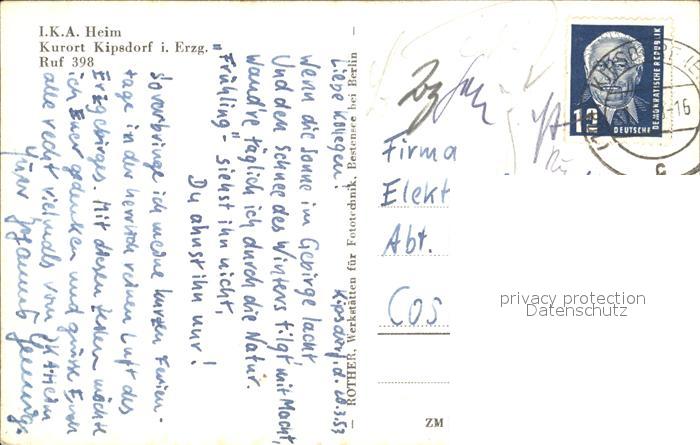 I.K.A. Heim
Kurort Kipsdorf i. Erzg.
Ruf 398
Kipsdorf, d. 20.3.53
Liebe Kollegen!
Wenn die Sonne im Gebirge lacht
Und den Schnee des Winters tilgt mit Macht,
Wand're täglich ich durch die Natur.
"Frühling" siehst ihn nicht,
Du ahnst ihn nur!
So verbringe ich meine kurzen Ferien-
tage in der herrlich reinen Luft des
Erzgebirges. Mit diesen Zeilen möchte
ich Euer gedenken und grüsse Euch
alle recht vielmals vom IKA-Heim
Euer Johannes
ROTHER, Werkstätten für Fototechnik, Bestensee bei Berlin
Firma
Elekt
Abt.
Cos
ZM
12
DEUTSCHE
DEMOKRATISCHE REPUBLIK
16
c
privacy protection
Datenschutz